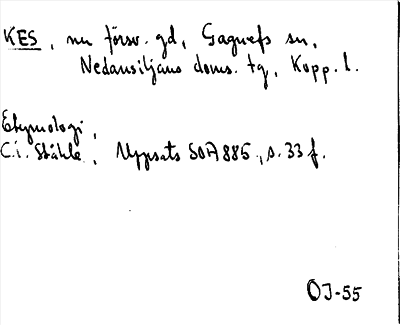 KES, nu försv. gd, Gagnefs sn,
Nedansiljans doms. tg, Kopp. l.
Etymologi,
C.I. Ståhle, Uppsats SOA 885, s. 33 f.
OJ-55